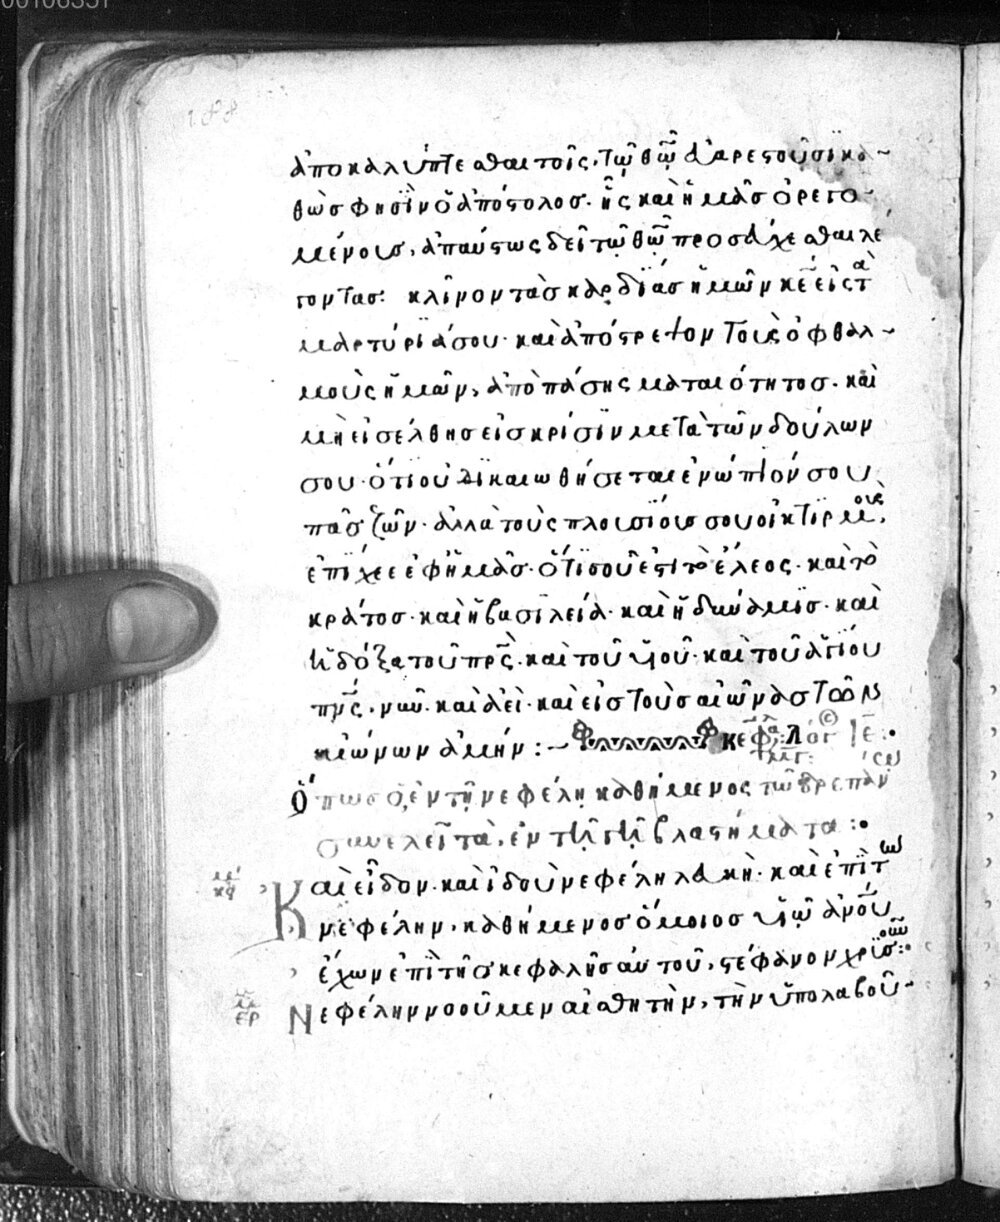 188
ἀποκαλύπτεσθαι τοῖς τῷ θῷ εὐαρεστοῦσι κα
θώς φησὶν ὁ ἀπόστολος· ἧς καὶ ἡμᾶς ὀρεγο
μένους, ἀπαύστως δεῖ τῷ θῷ προσεύχεσθαι λέ
γοντας· κλῖνον τὰς καρδίας ἡμῶν κε εἰς τὰ
μαρτύριά σου· καὶ ἀπόστρεψον τοὺς ὀφθαλ
μοὺς ἡμῶν, ἀπὸ πάσης ματαιότητος· καὶ
μὴ εἰσέλθῃς εἰς κρίσιν μετὰ τῶν δούλων
σου· ὅτι οὐ δικαιωθήσεται ἐνώπιόν σου
πᾶς ζῶν· ἀλλὰ τοὺς πλουσίους σου οἰκτιρμούς,
ἐπίχεε ἐφ ἡμᾶς· ὅτι σοῦ ἐστι τὸ ἔλεος· καὶ τὸ
κράτος· καὶ ἡ βασιλεία· καὶ ἡ δύναμις· καὶ
ἡ δόξα τοῦ πρς· καὶ τοῦ υἱοῦ· καὶ τοῦ ἁγίου
πνς, νῦν· καὶ ἀεὶ· καὶ εἰς τοὺς αἰῶνας τῶν
αἰώνων ἀμήν :~ κεφ λόγ ιε :
Ὅπως ὁ ἐν τῇ νεφέλῃ καθήμενος τῷ δρεπάνω
συνελεῖ τὰ ἐν τῇ γῇ βλαστήματα :
κείμενον Καὶ εἶδον· καὶ ἰδοὺ νεφέλη λευκὴ· καὶ ἐπὶ τὴν
νεφέλην, καθήμενος ὅμοιος υἱῷ ἀνου
ἔχων ἐπὶ τῆς κεφαλῆς αὐτοῦ, στέφανον χρυσοῦν :
Νεφέλην νοοῦμεν αἰσθητὴν, τὴν ὑπολαβοῦ